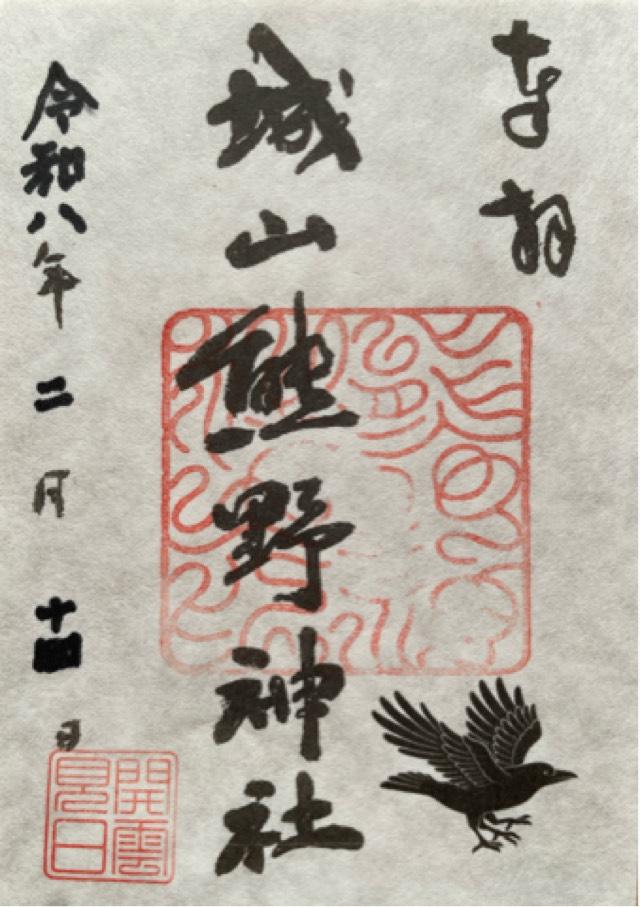 奉拝
城山熊野神社
令和八年二月十四日
開雲見日